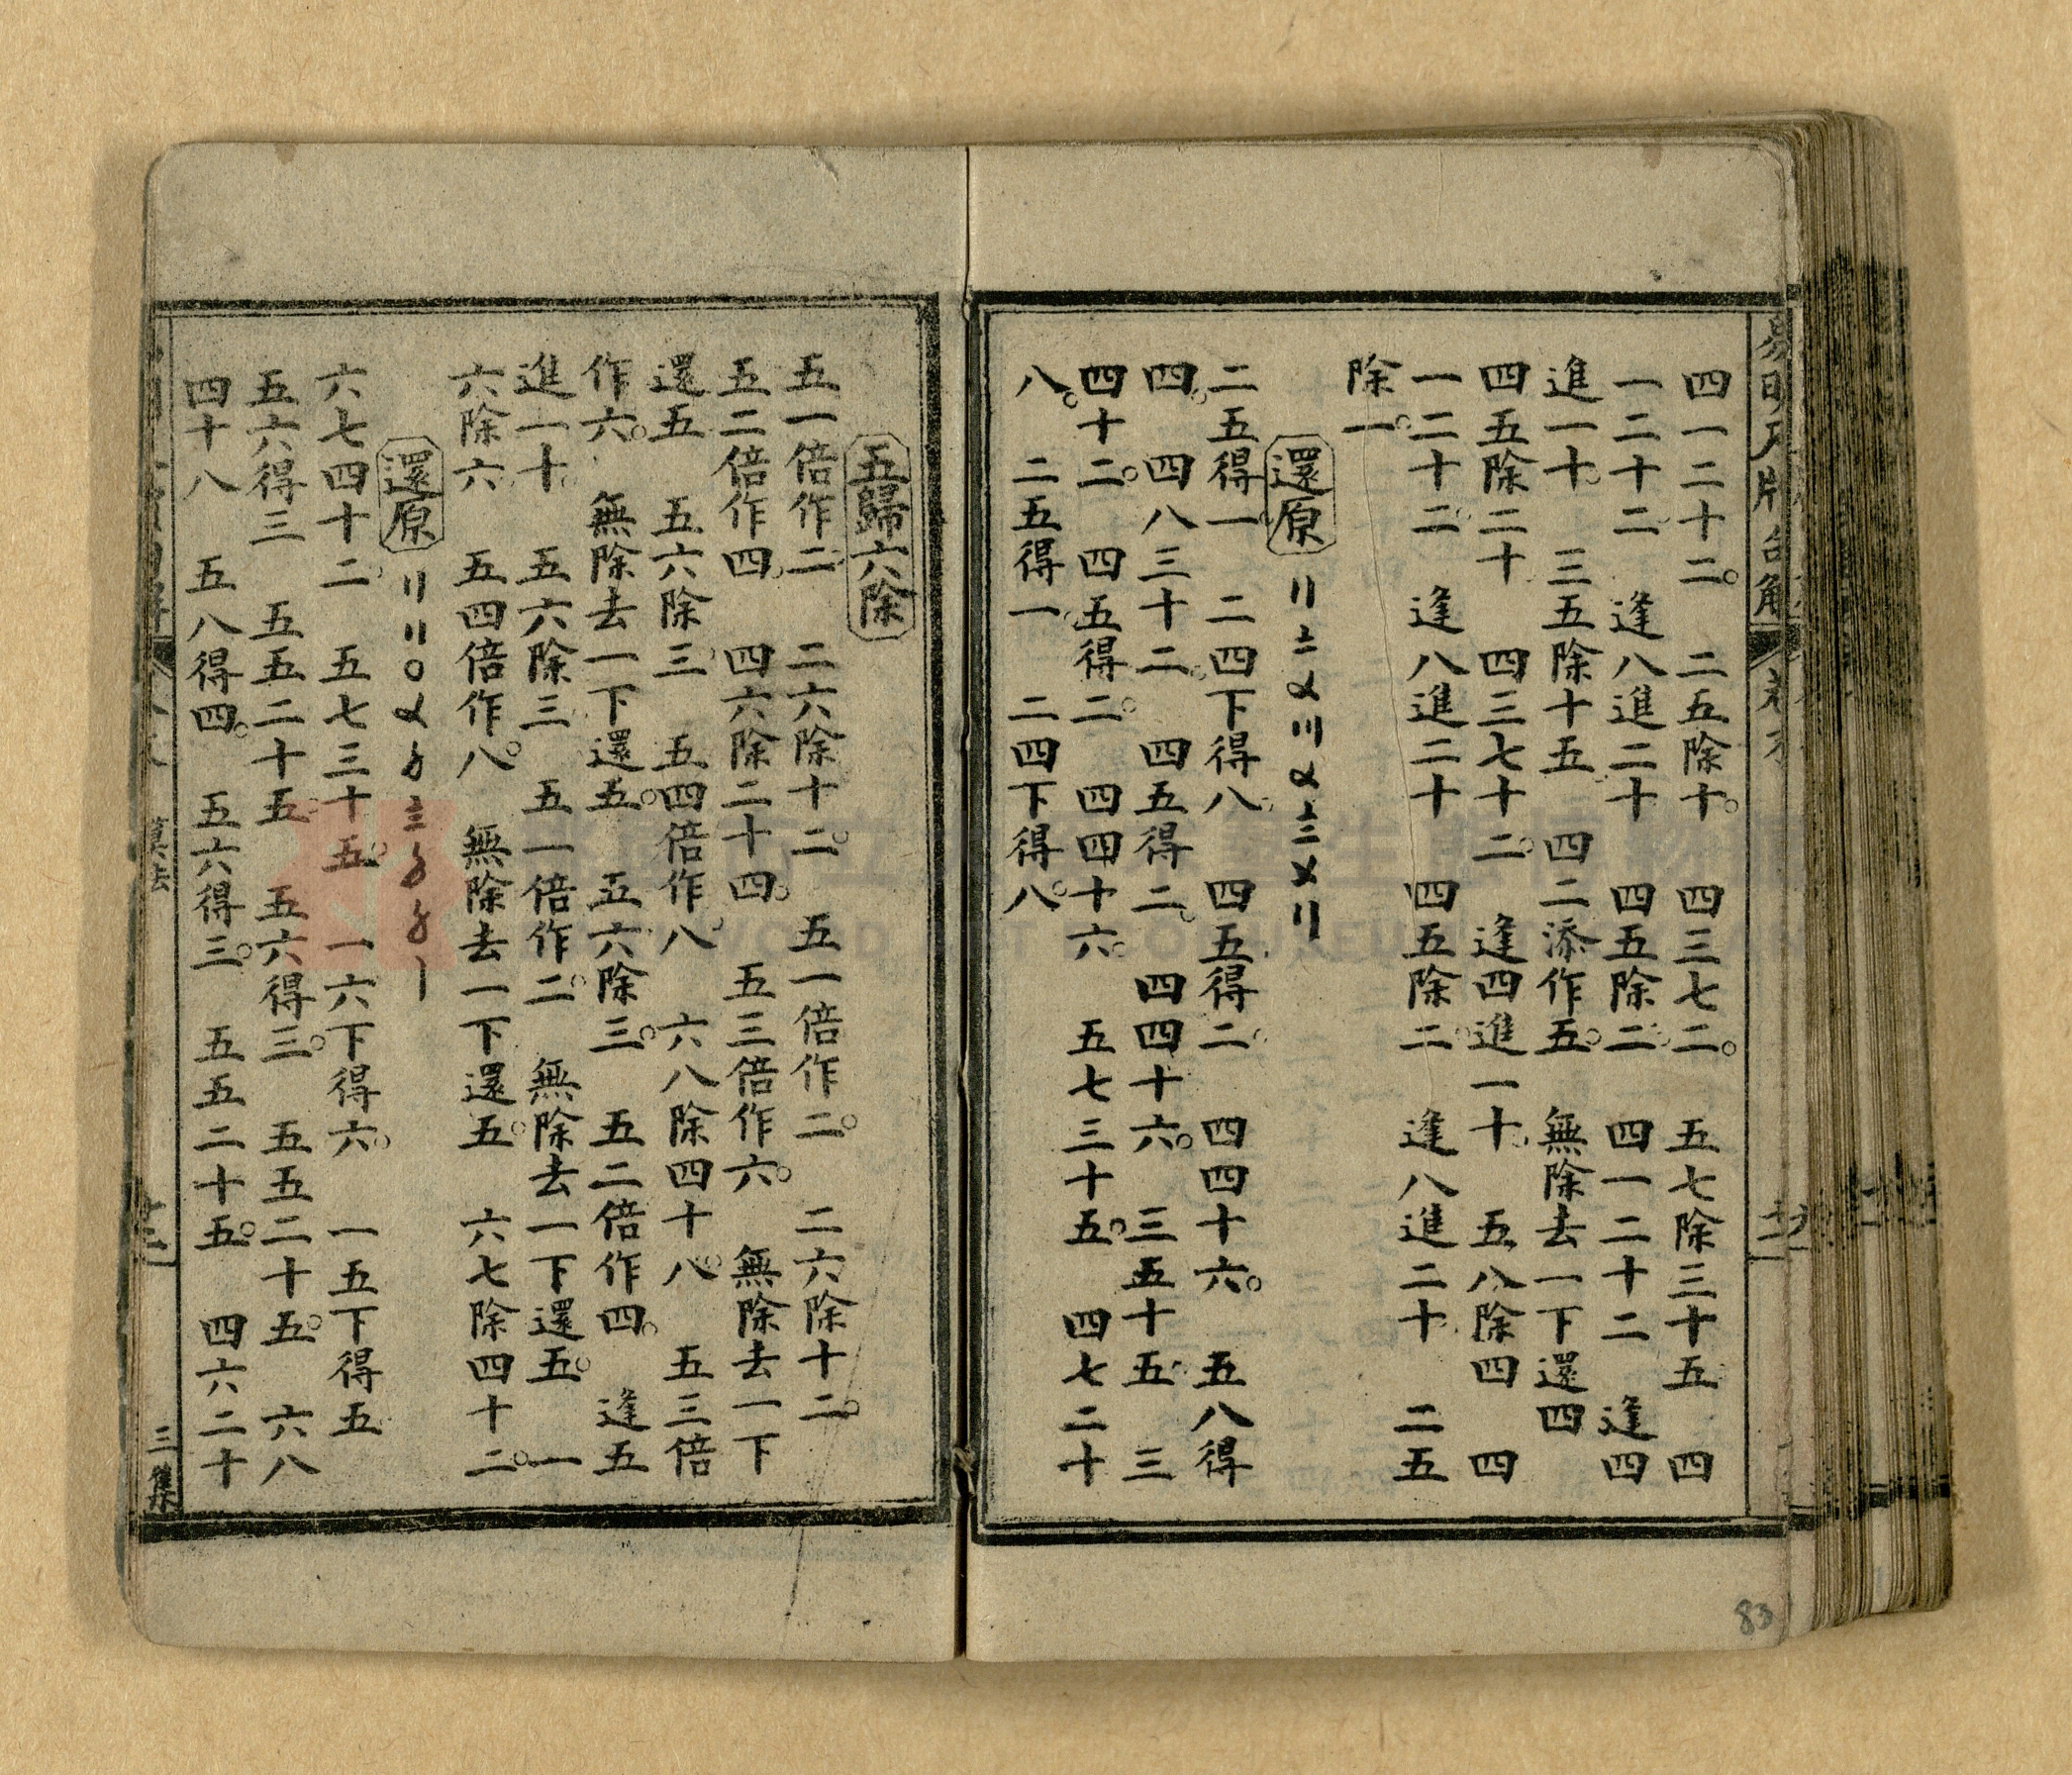 四一二十二。 二五除十。 四三七二。 五七除三十五 四
一二十二 逢八進二十 四五除二。 四一二十二 逢四
進一十。 三五除十五 四二添作五。 無除去一下還四
四五除二十 四三七十二。 逢四進一十。 五八除四 四
一二十二 逢八進二十 四五除二 逢八進二十 二五
除一。
還原 〢〦〤〣〤〨〤〢
二五得一 二四下得八 四五得二。 四四十六。 五八得
四。 四八三十二。 四五得二。 四四十六。 三五十五 三
四十二。 四五得二。 四四十六。 五七三十五。 四七二十
八。 二五得一 二四下得八。
五歸六除
五一倍作二 二六除十二。 五一倍作二。 二六除十二。
五二倍作四 四六除二十四。 五三倍作六。 無除去一下
還五 五六除三 五四倍作八 六八除四十八。 五三倍
作六。 無除去一下還五。 五六除三。 五二倍作四。 逢五
進一十。 五六除三 五一倍作二。 無除去一下還五。 一
六除六 五四倍作八。 無除去一下還五。 六七除四十二。
還原 〢〢〇〤〥〨〥〥〡
六七四十二 五七三十五。 一六下得六。 一五下得五
五六得三 五五二十五 五六得三。 五五二十五。 六八
四十八 五八得四。 五六得三。 五五二十五。 四六二十
算法
三集
83